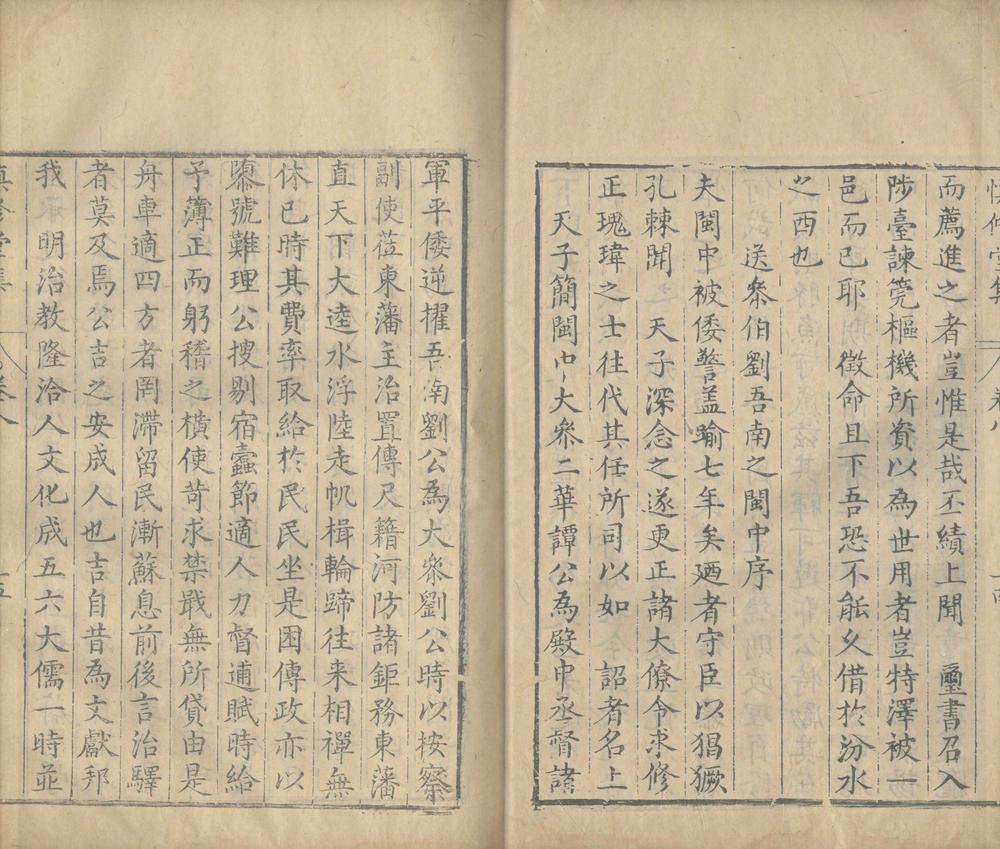 而薦進之者豈惟是哉丕績上聞　璽書召入
陟臺諫筦樞機所資以為世用者豈特澤被一
邑而已耶徴命且下吾恐不能久借於汾水
之酉也
送叅伯劉吾南之閩中序
夫閩中被倭警盖踰七年矣廼者守臣以猖獗
孔棘聞　天子深念之遂更正諸大僚令求修
正瑰瑋之士往代其任所司以如　詔者名上
天子簡閩中大叅二華譚公為殿中丞督諸
軍平倭逆擢吾南劉公為大叅劉公時以按察
副使莅東藩主治置傳尺籍河防諸鉅務東藩
直天下大逵水浮陸走帆楫輪蹄往来相禪無
休已時其費率取給於民民坐是困傳政亦以
隳號難理公搜剔宿蠹節適人力督逋賦時給
予簿正而躬稽之横使苛求禁戢無所貸由是
舟車適四方者罔滯留民漸蘇息前後言治驛
者莫及焉公吉之安成人也吉自昔為文獻邦
我　明治教隆洽人文化成五六大儒一時並